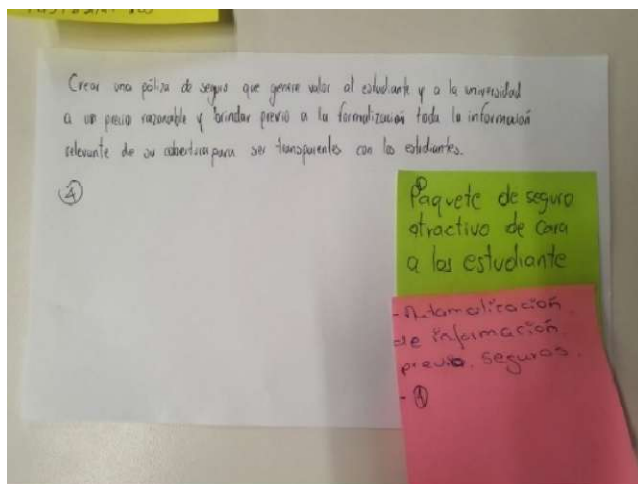 Crear una póliza de seguro que genere valor al estudiante y a la universidad
a un precio razonable y brindar previo a la formalización toda la información
relevante de su cobertura para ser transparentes con los estudiantes.
④
Paquete de seguro
atractivo de cara
a los estudiante
- Automaticación
de información
previo seguros.
-